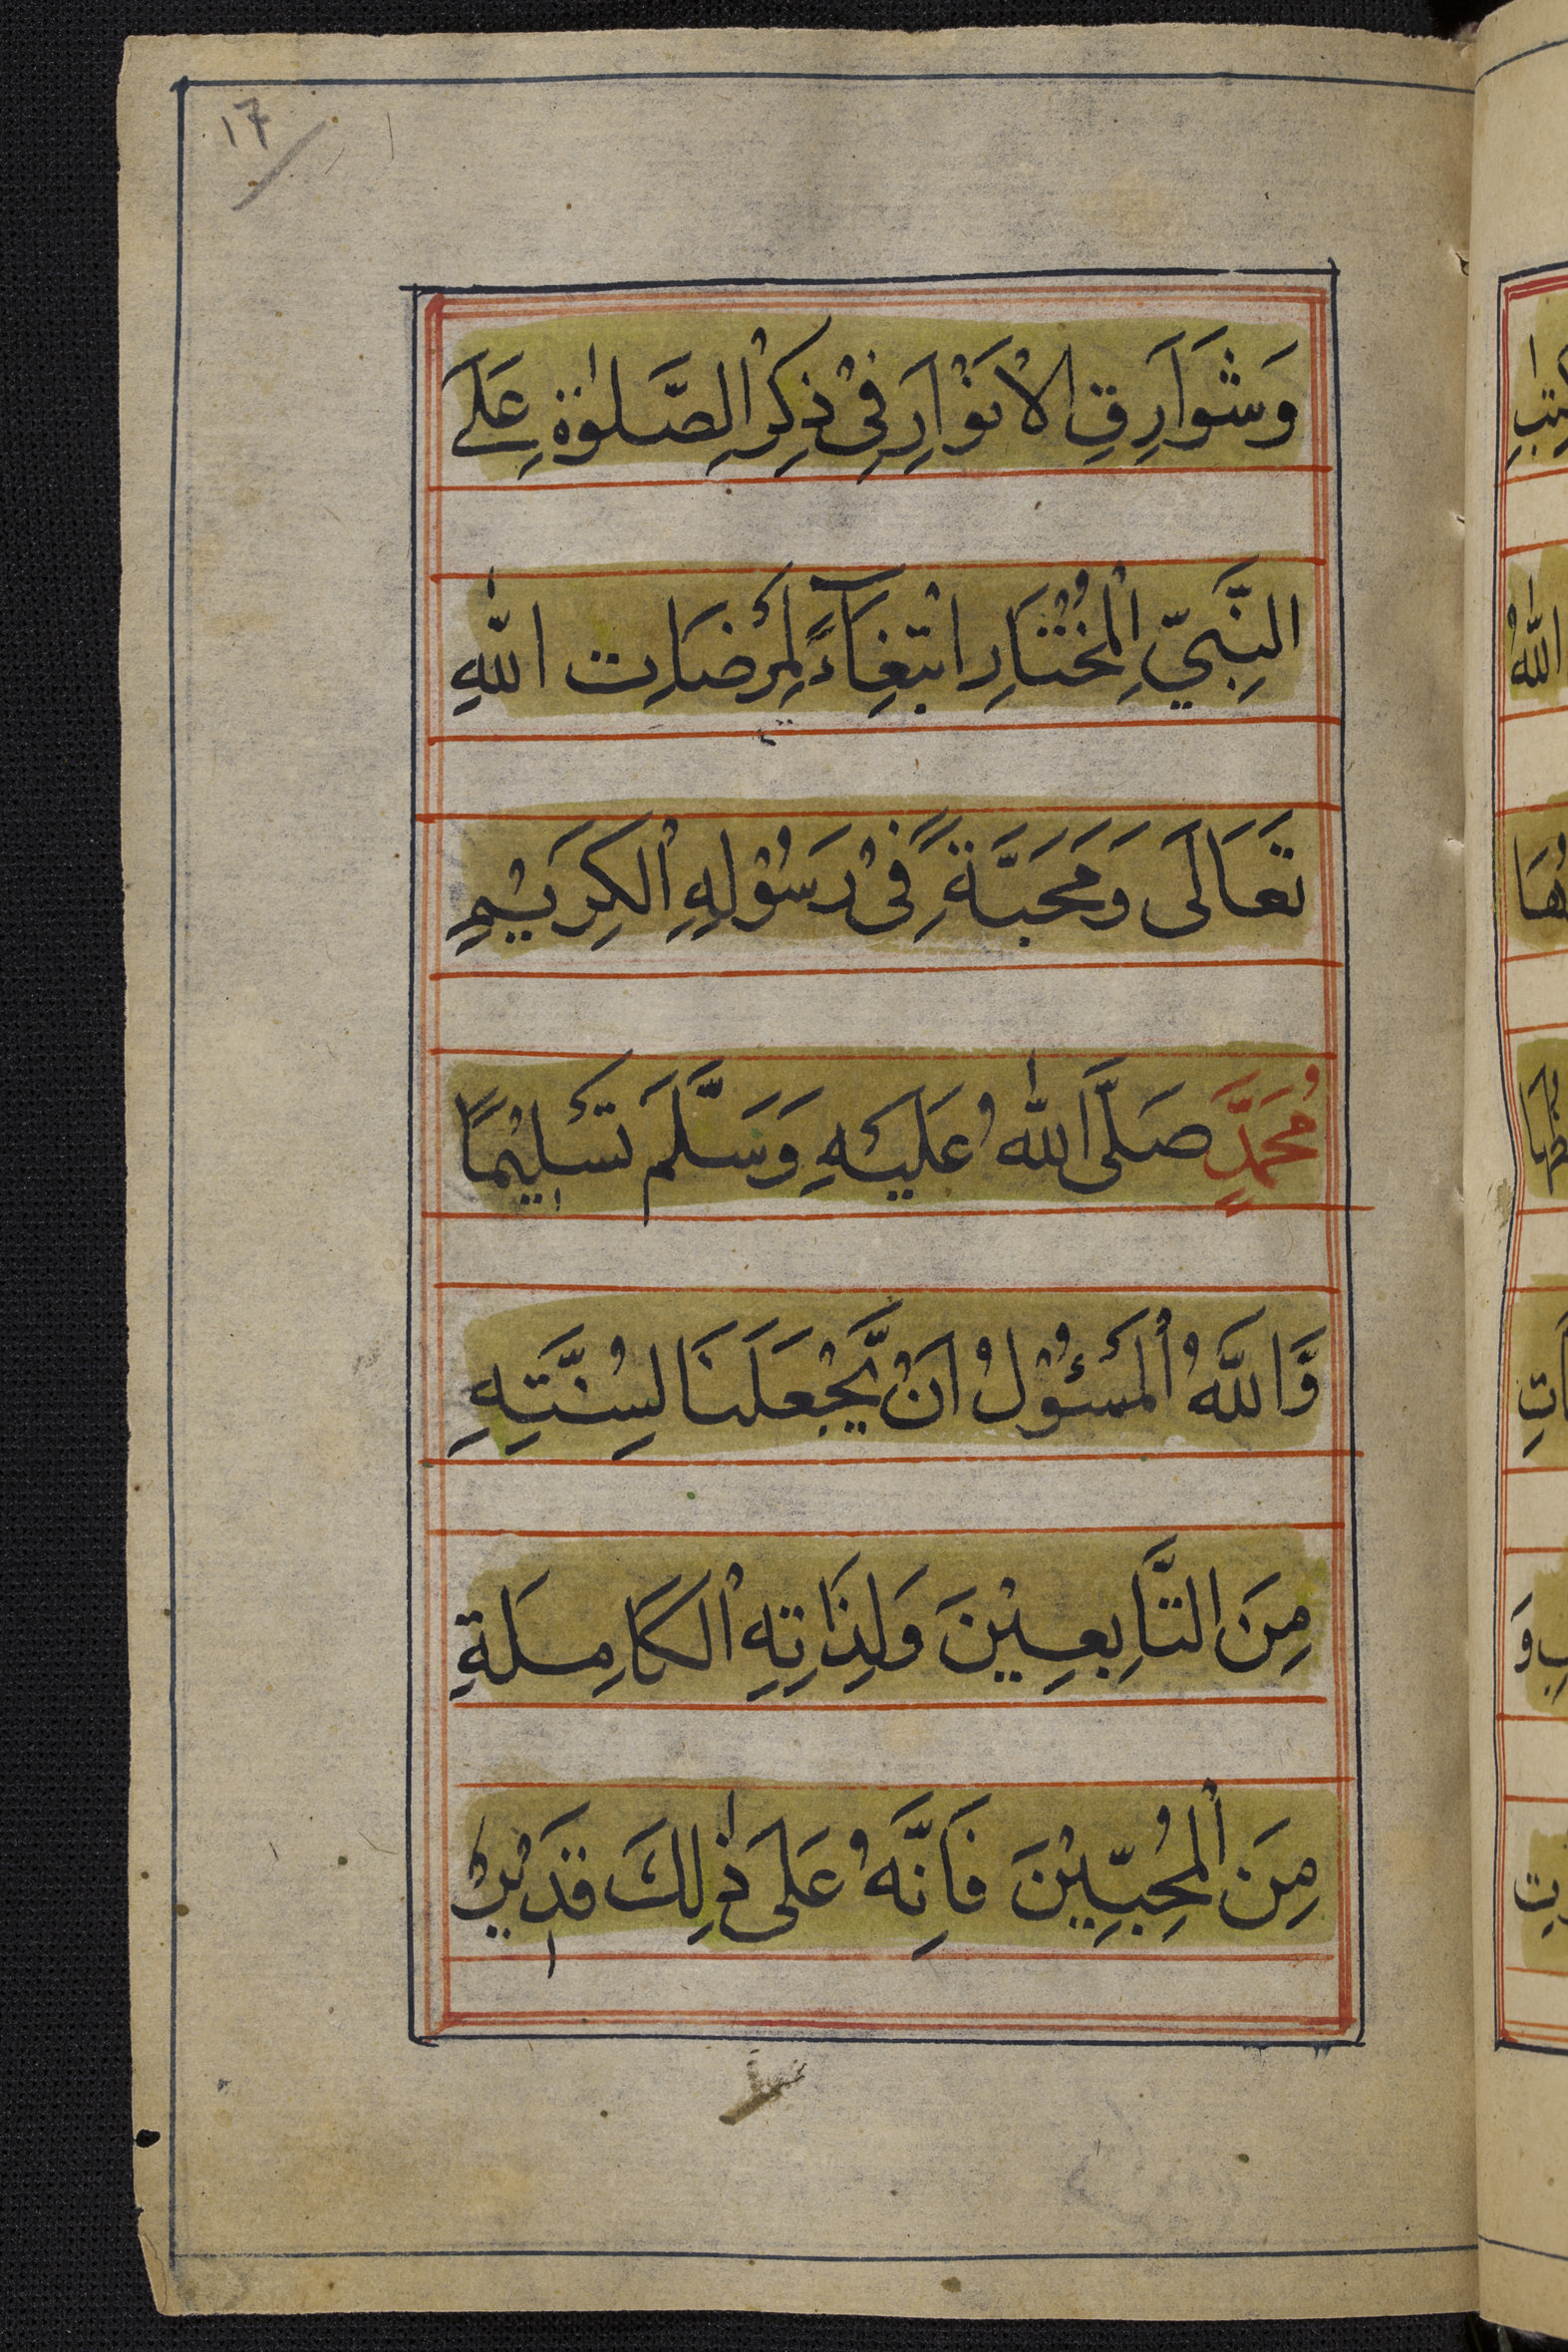 ١٦
وَشَوَارِقِ الْاَنْوَارِ فِیْ ذِكْرِ الصَّلٰوةِ عَلَے
النَّبِيِّ الْمُخْتَارِ ابْتِغَآءً لِمَرْضَاتِ اللّٰهِ
تَعَالَى وَمَحَبَّةً فِیْ رَسُوْلِهِ الْكَرِيْمِ
مُحَمَّدٍ صَلَّى اللّٰهُ عَلَيْهِ وَسَلَّمَ تَسْلِيْمًا
وَّاللّٰهُ الْمَسْئُوْلُ اَنْ يَّجْعَلَنَا لِسُنَّتِهِ
مِنَ التَّابِعِيْنَ وَلِذَاتِهِ الْكَامِلَةِ
مِنَ الْمُحِبِّيْنَ فَاِنَّهُ عَلَى ذٰلِكَ قَدِيْرٌ